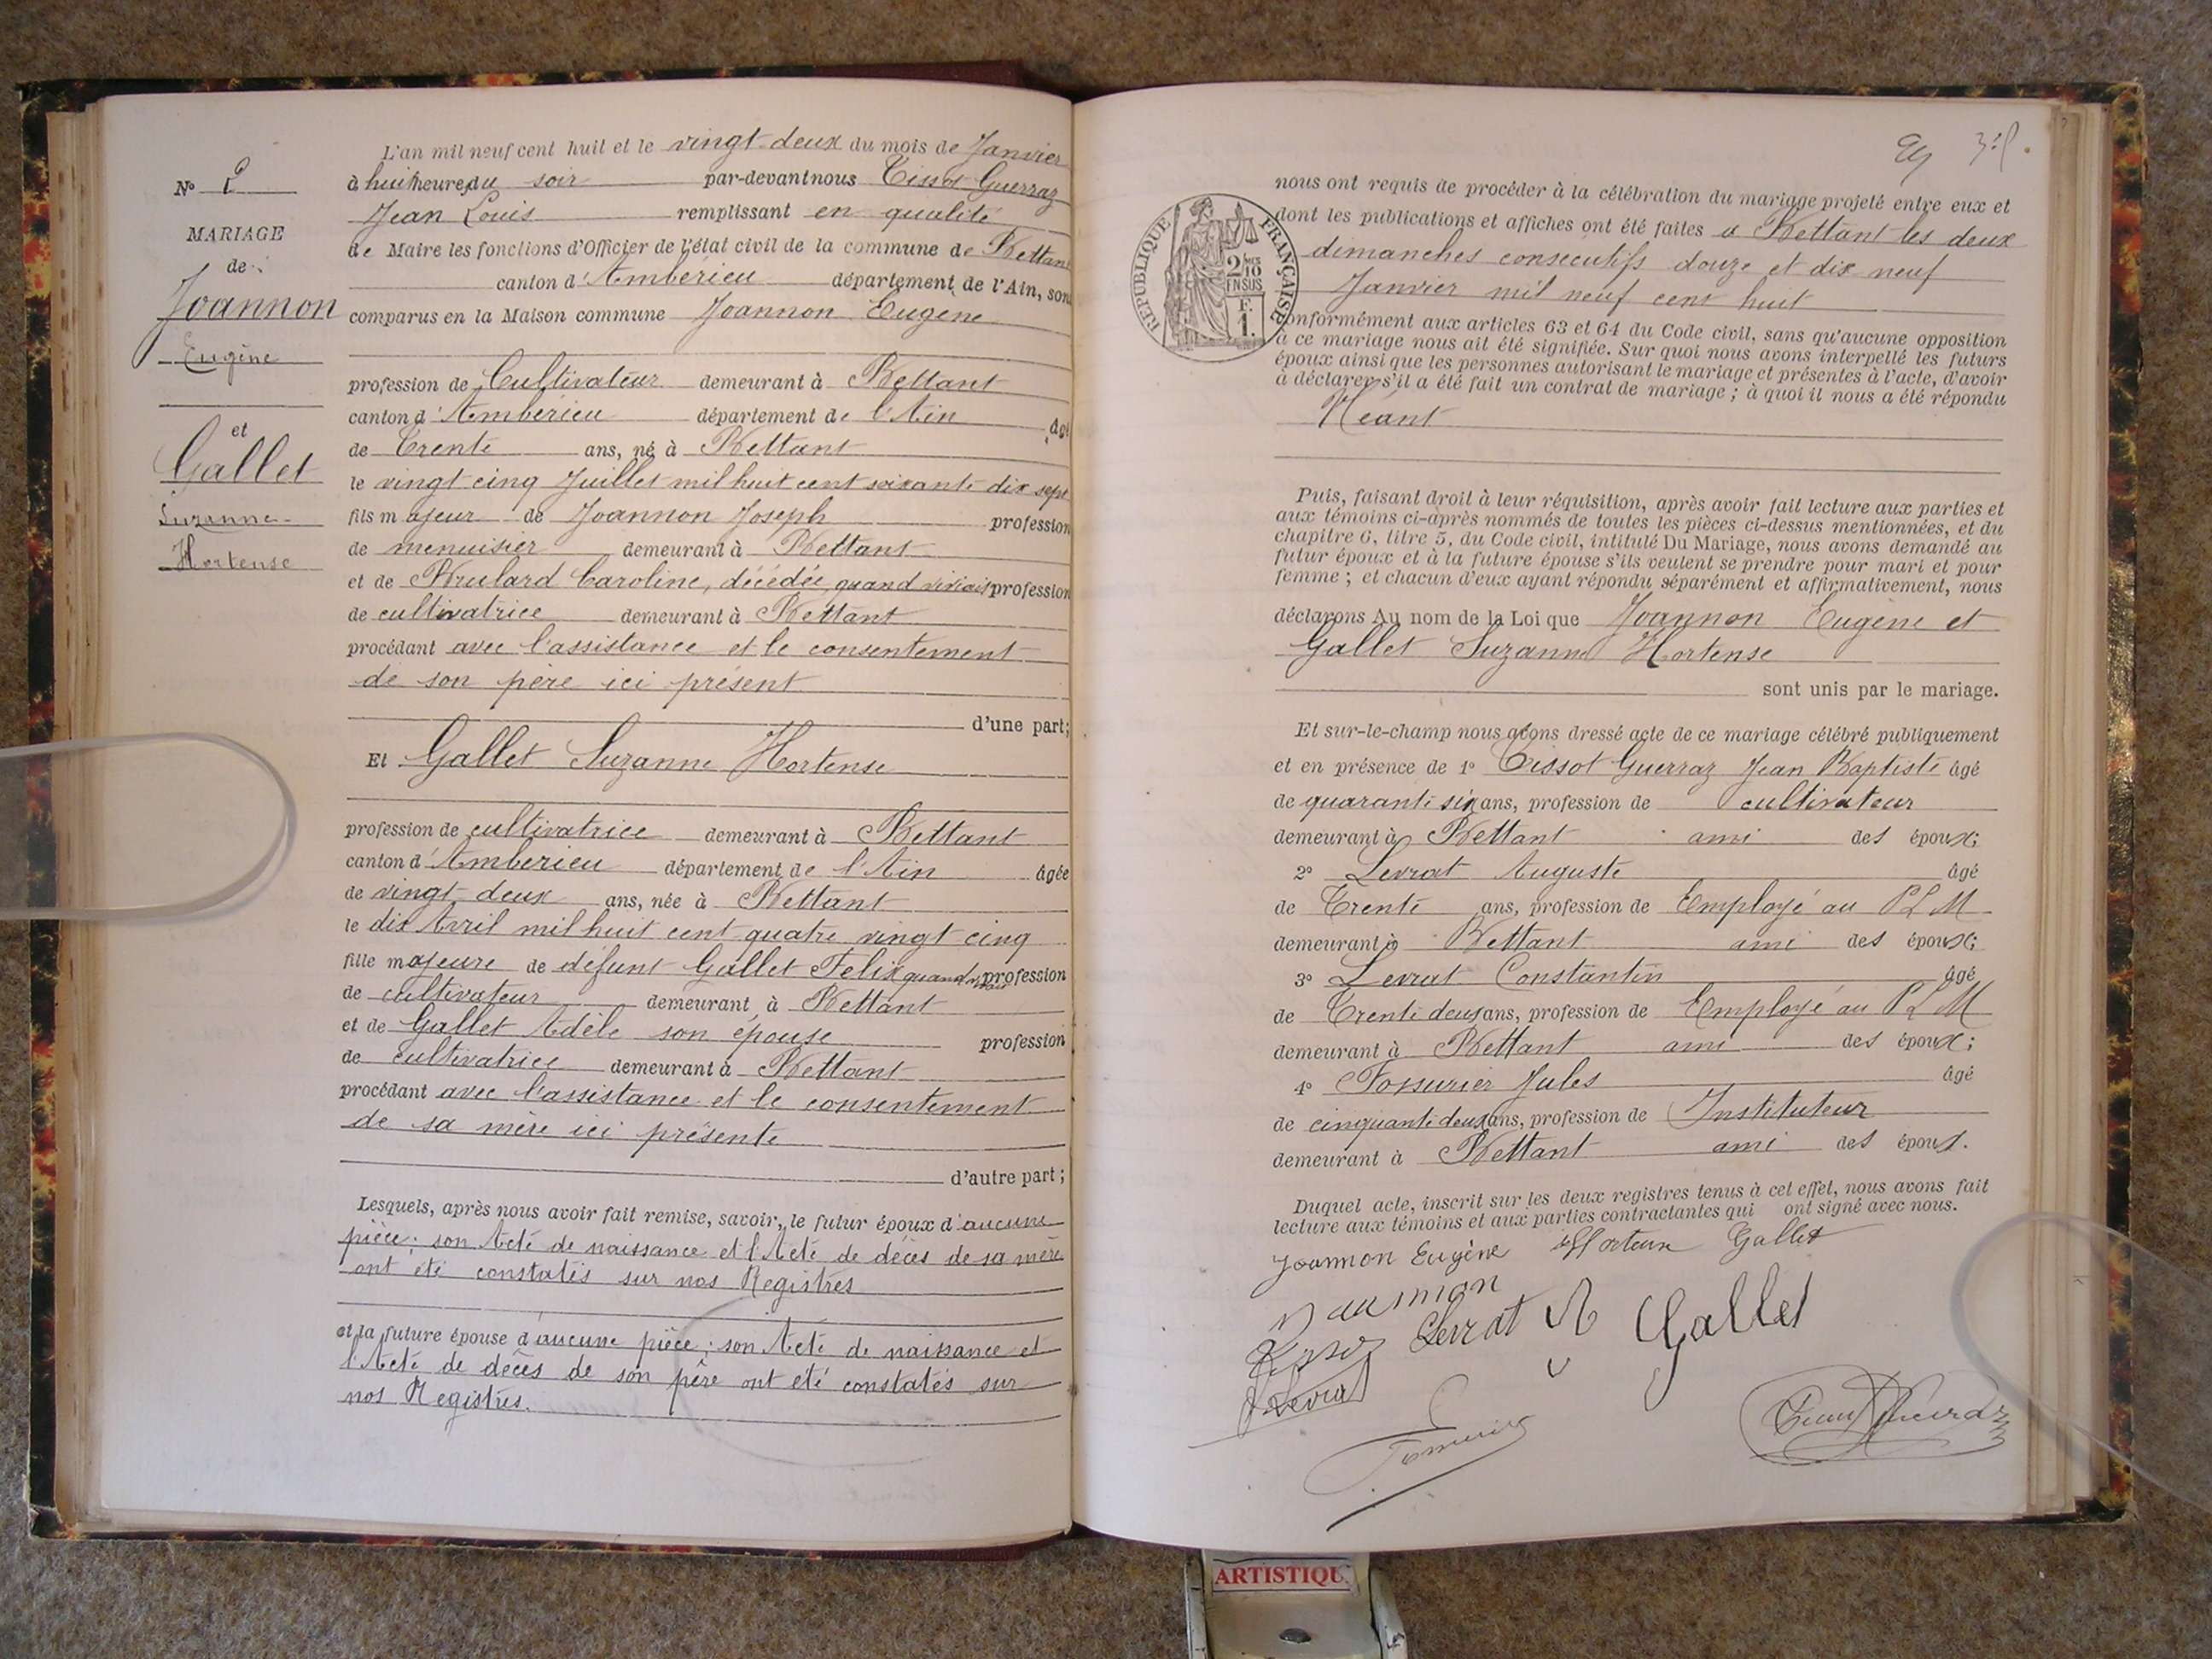 N° 2
MARIAGE
de
Joannon
Eugène
et
Gallet
Suzanne
Hortense
L'an mil neuf cent huit et le vingt-deux du mois de Janvier
à huit heures du soir par-devant nous Tissot Guerraz
Jean Louis remplissant en qualité
de Maire les fonctions d'Officier de l'état civil de la commune de Bettant
canton d'Ambérieu département de l'Ain, sont
comparus en la Maison commune Joannon Eugène
profession de Cultivateur demeurant à Bettant
canton d'Ambérieu département de l'Ain âgé
de Trente ans, né à Bettant
le vingt cinq Juillet mil huit cent soixante dix sept
fils majeur de Joannon Joseph profession
de menuisier demeurant à Bettant
et de Brulard Caroline, décédée, quand vivait profession
de cultivatrice demeurant à Bettant
procédant avec l'assistance et le consentement
de son père ici présent
d'une part;
Et Gallet Suzanne Hortense
profession de cultivatrice demeurant à Bettant
canton d'Ambérieu département de l'Ain âgée
de vingt-deux ans, née à Bettant
le dix Avril mil huit cent quatre vingt cinq
fille majeure de défunt Gallet Félix quand vivait profession
de cultivateur demeurant à Bettant
et de Gallet Adèle son épouse profession
de cultivatrice demeurant à Bettant
procédant avec l'assistance et le consentement
de sa mère ici présente
d'autre part;
Lesquels, après nous avoir fait remise, savoir, le futur époux d'aucune
pièce; son Acte de naissance et l'Acte de décès de sa mère
ont été constatés sur nos Registres
et la future épouse d'aucune pièce; son Acte de naissance et
l'Acte de décès de son père ont été constatés sur
nos Registres.
RÉPUBLIQUE FRANÇAISE
2/10
EN SUS
F.
1.
nous ont requis de procéder à la célébration du mariage projeté entre eux et
dont les publications et affiches ont été faites à Bettant les deux
dimanches consécutifs douze et dix neuf
Janvier mil neuf cent huit
conformément aux articles 63 et 64 du Code civil, sans qu'aucune opposition
à ce mariage nous ait été signifiée. Sur quoi nous avons interpellé les futurs
époux ainsi que les personnes autorisant le mariage et présentes à l'acte, d'avoir
à déclarer s'il a été fait un contrat de mariage; à quoi il nous a été répondu
Néant
Puis, faisant droit à leur réquisition, après avoir fait lecture aux parties et
aux témoins ci-après nommés de toutes les pièces ci-dessus mentionnées, et du
chapitre 6, titre 5, du Code civil, intitulé Du Mariage, nous avons demandé au
futur époux et à la future épouse s'ils veulent se prendre pour mari et pour
femme; et chacun d'eux ayant répondu séparément et affirmativement, nous
déclarons Au nom de la Loi que Joannon Eugène et
Gallet Suzanne Hortense
sont unis par le mariage.
Et sur-le-champ nous avons dressé acte de ce mariage célébré publiquement
et en présence de 1° Tissot Guerraz Jean Baptiste âgé
de quarante six ans, profession de cultivateur
demeurant à Bettant ami des époux;
2° Levrat Auguste âgé
de Trente ans, profession de Employé au PLM
demeurant à Bettant ami des époux;
3° Levrat Constantin âgé
de Trente deux ans, profession de Employé au PLM
demeurant à Bettant ami des époux;
4° Fornurier Jules âgé
de cinquante deux ans, profession de Instituteur
demeurant à Bettant ami des époux.
Duquel acte, inscrit sur les deux registres tenus à cet effet, nous avons fait
lecture aux témoins et aux parties contractantes qui ont signé avec nous.
Joannon Eugène Hortense Gallet
Levrat A Gallet
Levrat
ARTISTIQU